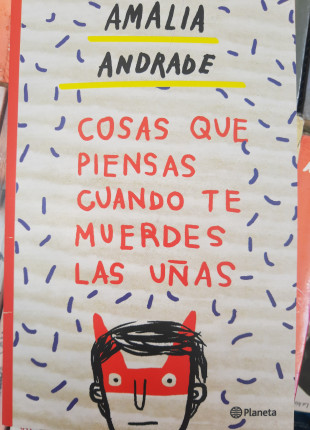 AMALIA
ANDRADE
COSAS QUE
PIENSAS
CUANDO TE
MUERDES
LAS UÑAS
Planeta